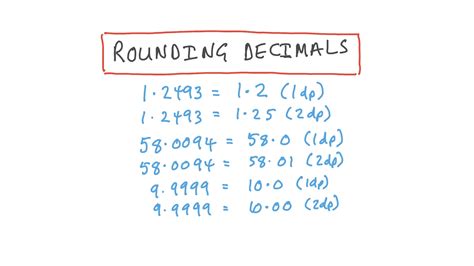 ROUNDING DECIMALS
1.2493 = 1.2 (1dp)
1.2493 = 1.25 (2dp)
58.0094 = 58.0 (1dp)
58.0094 = 58.01 (2dp)
9.9999 = 10.0 (1dp)
9.9999 = 10.00 (2dp)